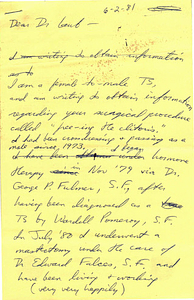 6-2-81
Dear Dr. Laub —
I am writing to obtain information
as to
I am a female-to-male TS,
and am writing to obtain information
regarding your surgical procedure
called freeing the clitoris.
I had been crossdressing & passing as a
male since 1973, I began
I have been under hormone
therapy since Nov '79 via Dr.
George P. Fulmer, S.F., after
having been diagnosed as a
TS by Wardell Pomeroy, S.F.
In July '80 I underwent a
mastectomy under the care of
Dr Edward Falces, S.F., and
have been living & working
(very very happily)